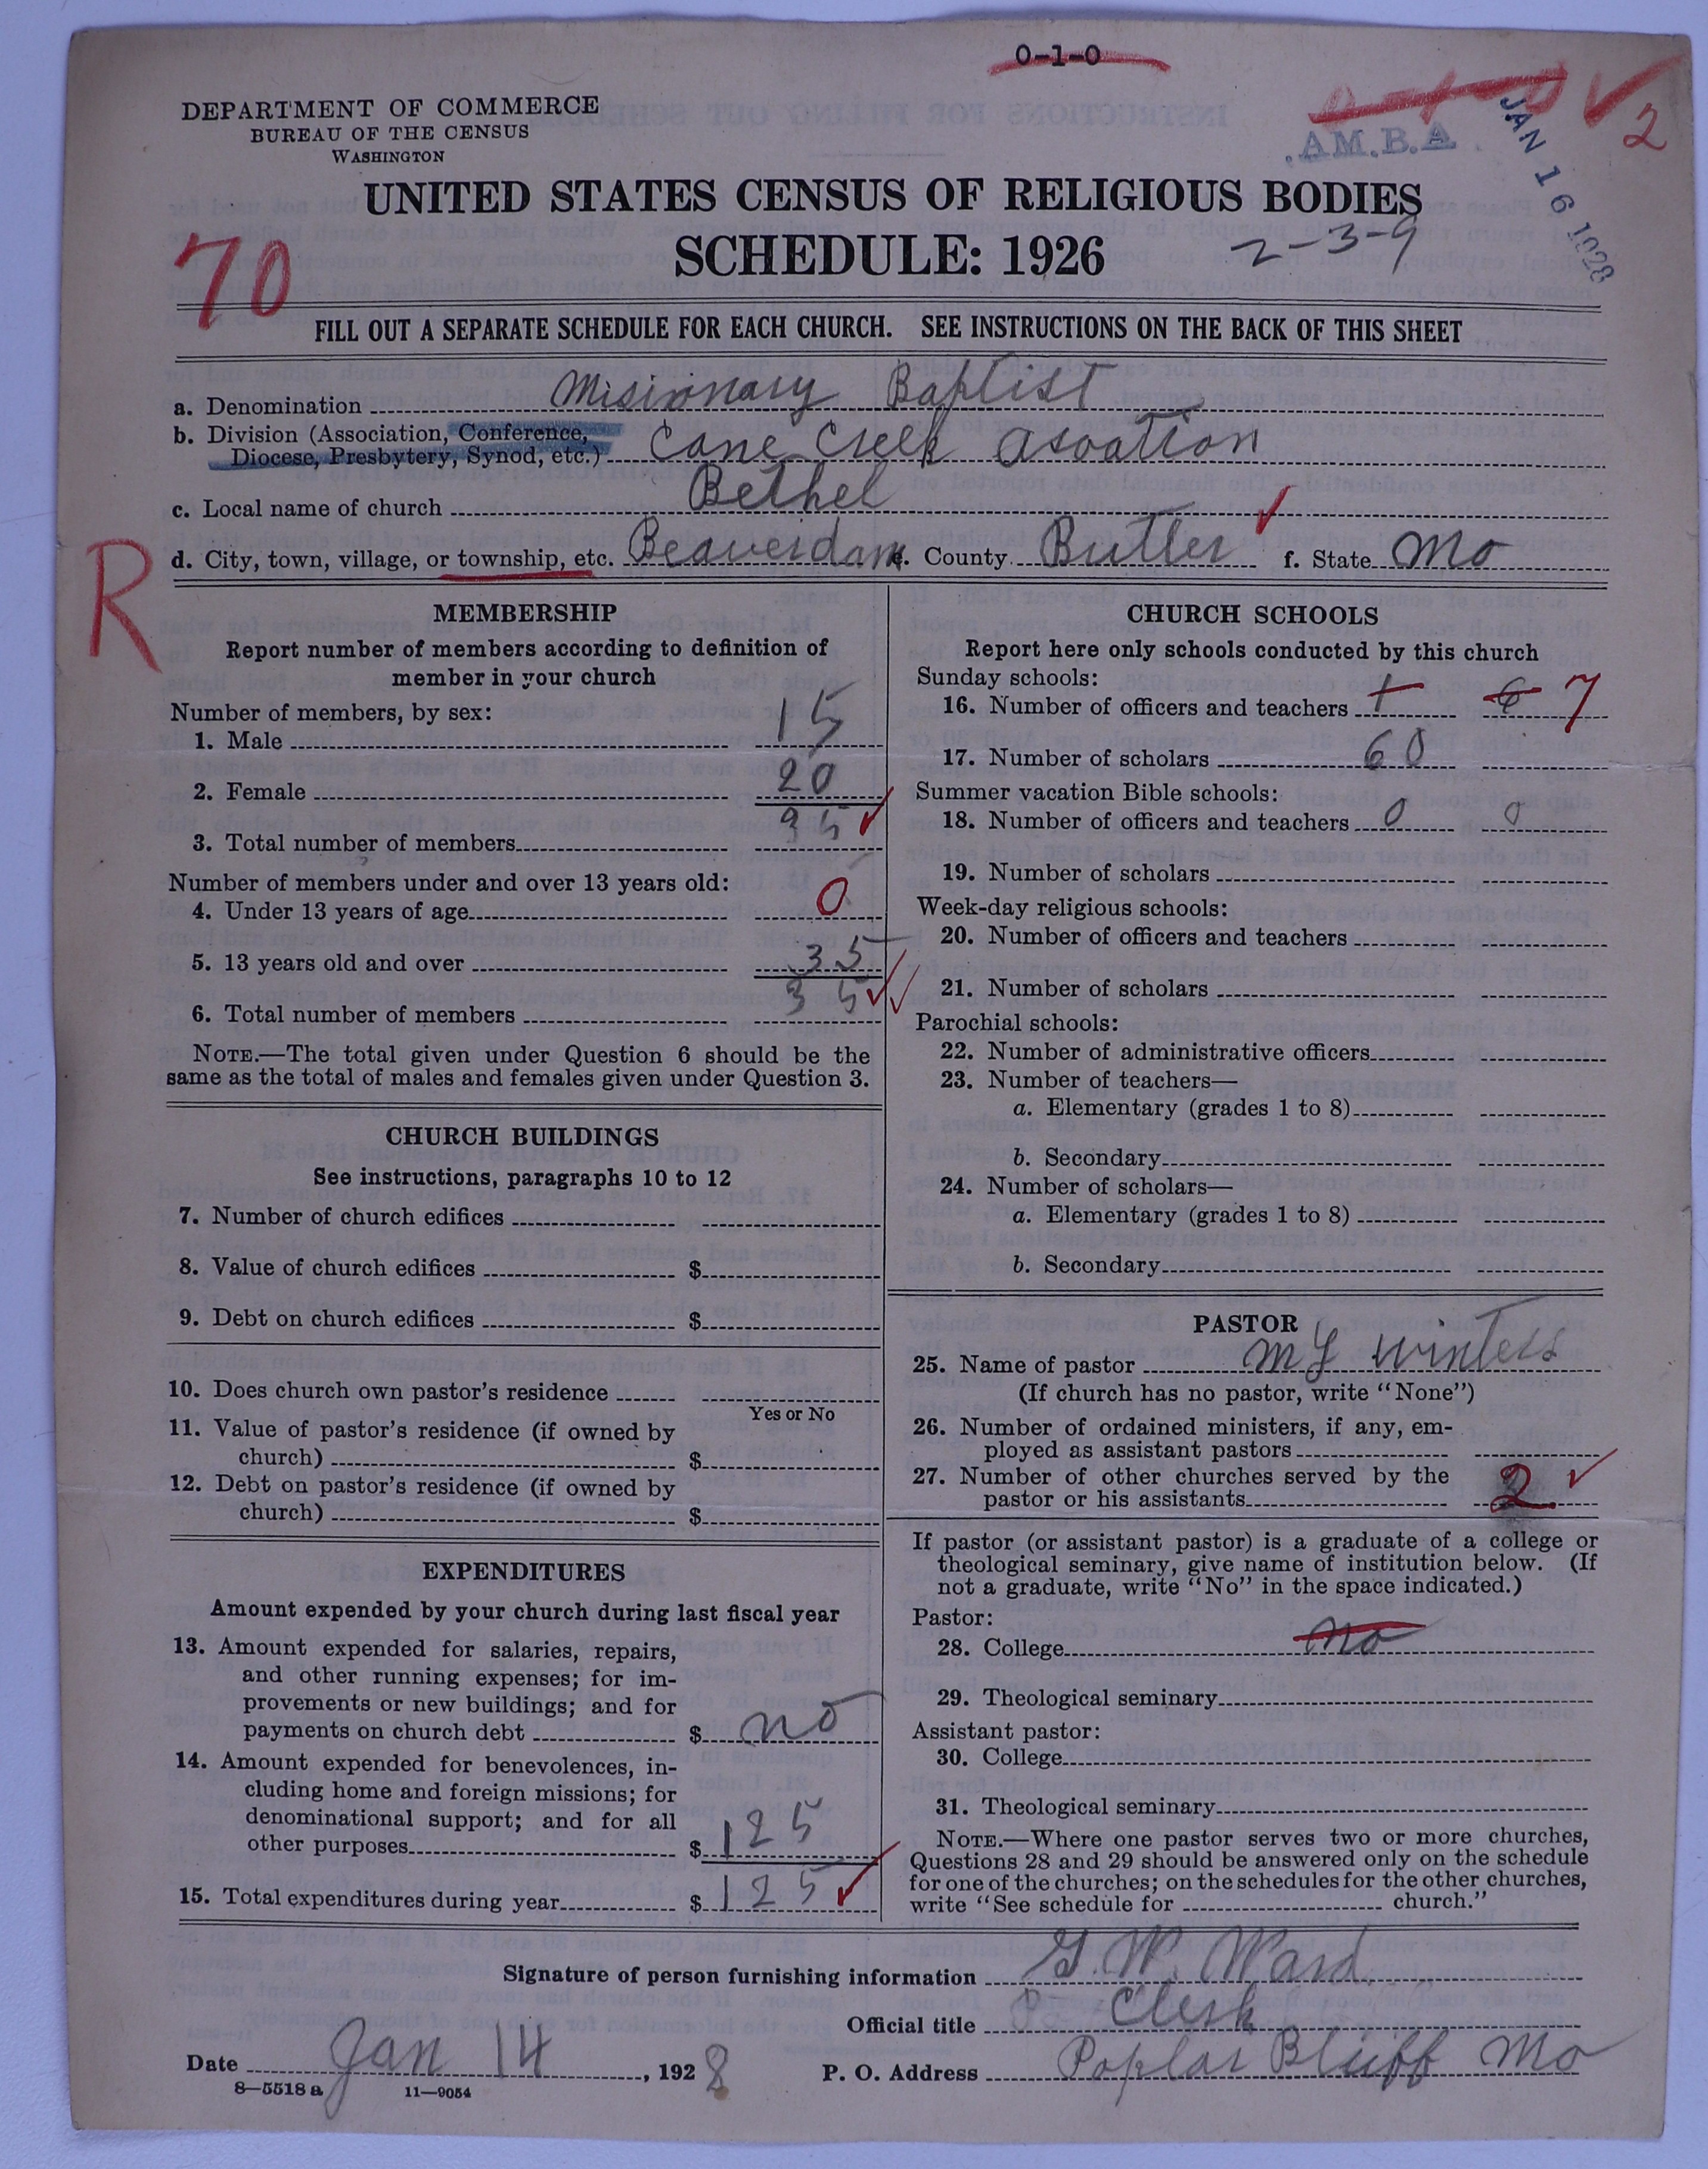 0-1-0
DEPARTMENT OF COMMERCE
BUREAU OF THE CENSUS
WASHINGTON
A.M.B.A.
JAN 16 1928
2
UNITED STATES CENSUS OF RELIGIOUS BODIES
SCHEDULE: 1926
2-3-9
70
FILL OUT A SEPARATE SCHEDULE FOR EACH CHURCH. SEE INSTRUCTIONS ON THE BACK OF THIS SHEET
a. Denomination Misionary Baptist
b. Division (Association, Conference, Diocese, Presbytery, Synod, etc.) Cane Creek Asoation
c. Local name of church Bethel
d. City, town, village, or township, etc. Beaverdam e. County Butler f. State Mo
R
MEMBERSHIP
Report number of members according to definition of
member in your church
Number of members, by sex:
1. Male 15
2. Female 20
3. Total number of members 35
Number of members under and over 13 years old:
4. Under 13 years of age 0
5. 13 years old and over 35
6. Total number of members 35
NOTE.—The total given under Question 6 should be the
same as the total of males and females given under Question 3.
CHURCH BUILDINGS
See instructions, paragraphs 10 to 12
7. Number of church edifices
8. Value of church edifices $
9. Debt on church edifices $
10. Does church own pastor's residence
Yes or No
11. Value of pastor's residence (if owned by
church) $
12. Debt on pastor's residence (if owned by
church) $
EXPENDITURES
Amount expended by your church during last fiscal year
13. Amount expended for salaries, repairs,
and other running expenses; for im-
provements or new buildings; and for
payments on church debt $ no
14. Amount expended for benevolences, in-
cluding home and foreign missions; for
denominational support; and for all
other purposes $ 125
15. Total expenditures during year $ 125
CHURCH SCHOOLS
Report here only schools conducted by this church
Sunday schools:
16. Number of officers and teachers 1 6 7
17. Number of scholars 60
Summer vacation Bible schools:
18. Number of officers and teachers 0 0
19. Number of scholars
Week-day religious schools:
20. Number of officers and teachers
21. Number of scholars
Parochial schools:
22. Number of administrative officers
23. Number of teachers—
a. Elementary (grades 1 to 8)
b. Secondary
24. Number of scholars—
a. Elementary (grades 1 to 8)
b. Secondary
PASTOR
25. Name of pastor M Y Winters
(If church has no pastor, write "None")
26. Number of ordained ministers, if any, em-
ployed as assistant pastors
27. Number of other churches served by the
pastor or his assistants 2
If pastor (or assistant pastor) is a graduate of a college or
theological seminary, give name of institution below. (If
not a graduate, write "No" in the space indicated.)
Pastor:
28. College no
29. Theological seminary
Assistant pastor:
30. College
31. Theological seminary
NOTE.—Where one pastor serves two or more churches,
Questions 28 and 29 should be answered only on the schedule
for one of the churches; on the schedules for the other churches,
write "See schedule for church."
Signature of person furnishing information G. W. Ward
Official title Clerk
Date Jan 14, 1928 P. O. Address Poplar Bluff Mo
8—5518 a 11—9054